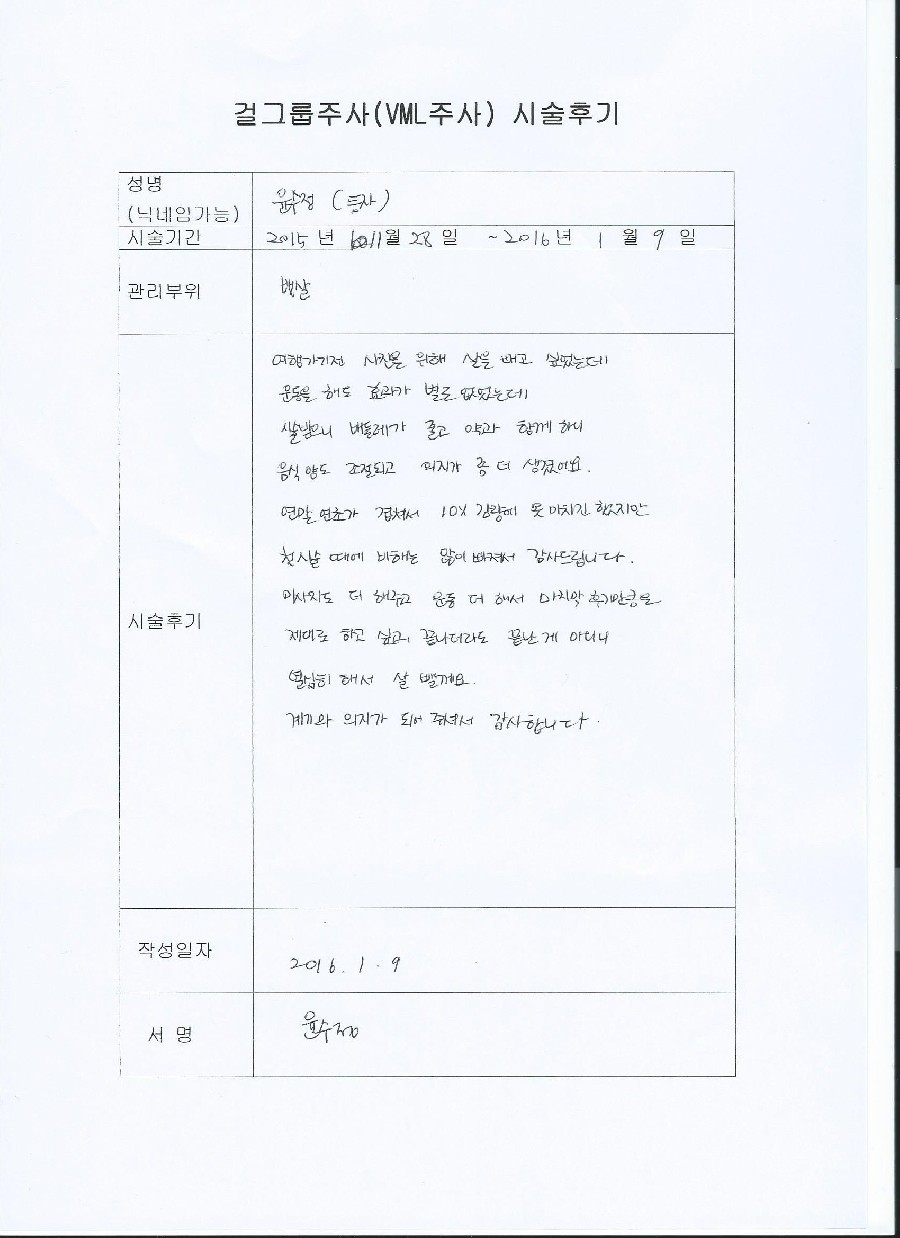 걸그룹주사(VML주사) 시술후기
성명
(닉네임가능)
윤수정 (튼자)
시술기간
2015 년 11월 28 일 ~2016년 1 월 9 일
관리부위
뱃살
시술후기
여행가기전 사진을 위해 살을 빼고 싶었는데
운동을 해도 효과가 별로 없었는데
시술받으니 배둘레가 줄고 약과 함께 하니
음식 양도 조절되고 의지가 좀 더 생겼어요.
연말 연초가 겹쳐서 10% 감량에 못 미치긴 했지만
첫 시술 때에 비해는 많이 빠져서 감사드립니다.
마사지도 더 해주고 운동 더 해서 마지막 후기만큼을
제대로 하고 싶고, 끝나더라도 끝난 게 아니니
열심히 해서 살 뺄게요.
계기와 의지가 되어 주셔서 감사합니다.
작성일자
2016. 1 . 9
서 명
윤수정